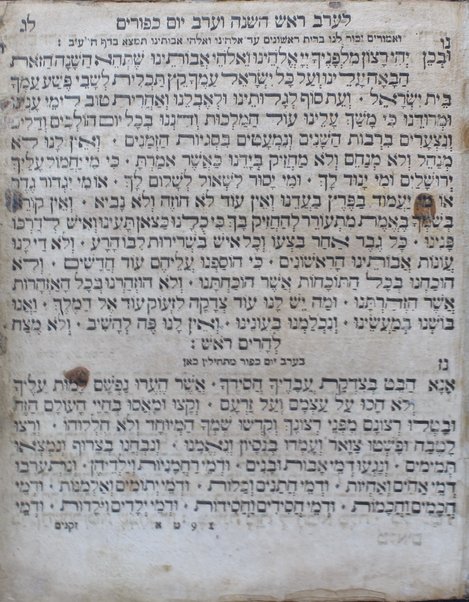 לערב ראש השנה וערב יום כפורים לג
ואומרים זכור לנו ברית ראשונים עד אלהינו ואלהי אבותינו תמצא בדף
נו
ובכן יהי רצון מלפניך יי אלהינו ואלהי אבותינו שתהא השנה הזאת
הבאה עלינו ועל כל ישראל עמך קץ תכלית לשבי פשע עמך
בית ישראל · ועת סוף לגלותינו ולאבלנו ואחרית טוב לימי ענינו
ומרודנו כי משך עלינו עול המלכות ודלונו בכל יום הולכים ודלים
ונצעדים ברבות השנים ונמעטים בסגיות הזמנים · ואין לנו לא
מנהל ולא מנחם ולא מחזיק בידנו כאשר אמרת · כי מי יחמול עליך
ירושלים ומי ינוד לך · ומי יסור לשאול לשלום לך · או מי יגדור גדר
או מי יעמוד בפרץ בעדנו ואין עוד לא חוזה ולא נביא · ואין קורא
בשמך באמת מתעורר להחזיק בך כי כלנו כצאן תעינו ואיש לדרכו
פנינו · כל גבר אחר בצעו וכל איש בשרירות לבו הרע · ולא די לנו
עונות אבותינו הראשונים · כי הוספנו עליהם עוד חדשים · ולא
הוכחנו בכל התוכחות אשר הוכחתנו · ולא הוזהרנו בכל האזהרות
אשר הזהרתנו · ומה יש לנו עוד צדקה לזעוק עוד אל המלך · ואנו
בושנו במעשינו · ונכלמנו בעונינו · ואין לנו פה להשיב · ולא מצח
להרים ראש :
בערב יום כפור מתחילין כאן
נז
אנא הבט בצדקת עבדיך חסידך · אשר הערו נפשם למות עליך
ולא חכו על עצמם ועל זרעם · וקצו ומאסו בחיי העולם הזה
ובטלו רצונם מפני רצונך וקדשו שמך המיוחד ולא חללוהו · ורצו
לטבח ופשטו צואר ועמדו בנסיון ונאמנו · ונבחנו בצרוף ונמצאו
תמימים · ונגעו דמי אבות ובנים · ודמי רחמניות וילדיהן · ונתערבו
דמי אחים ואחיות · ודמי חתנים וכלות · ודמי יתומים ואלמנות · ודמי
חכמים וחכמות · ודמי חסידים וחסידות · ודמי ילדים וילדות · ודמי
זקנים